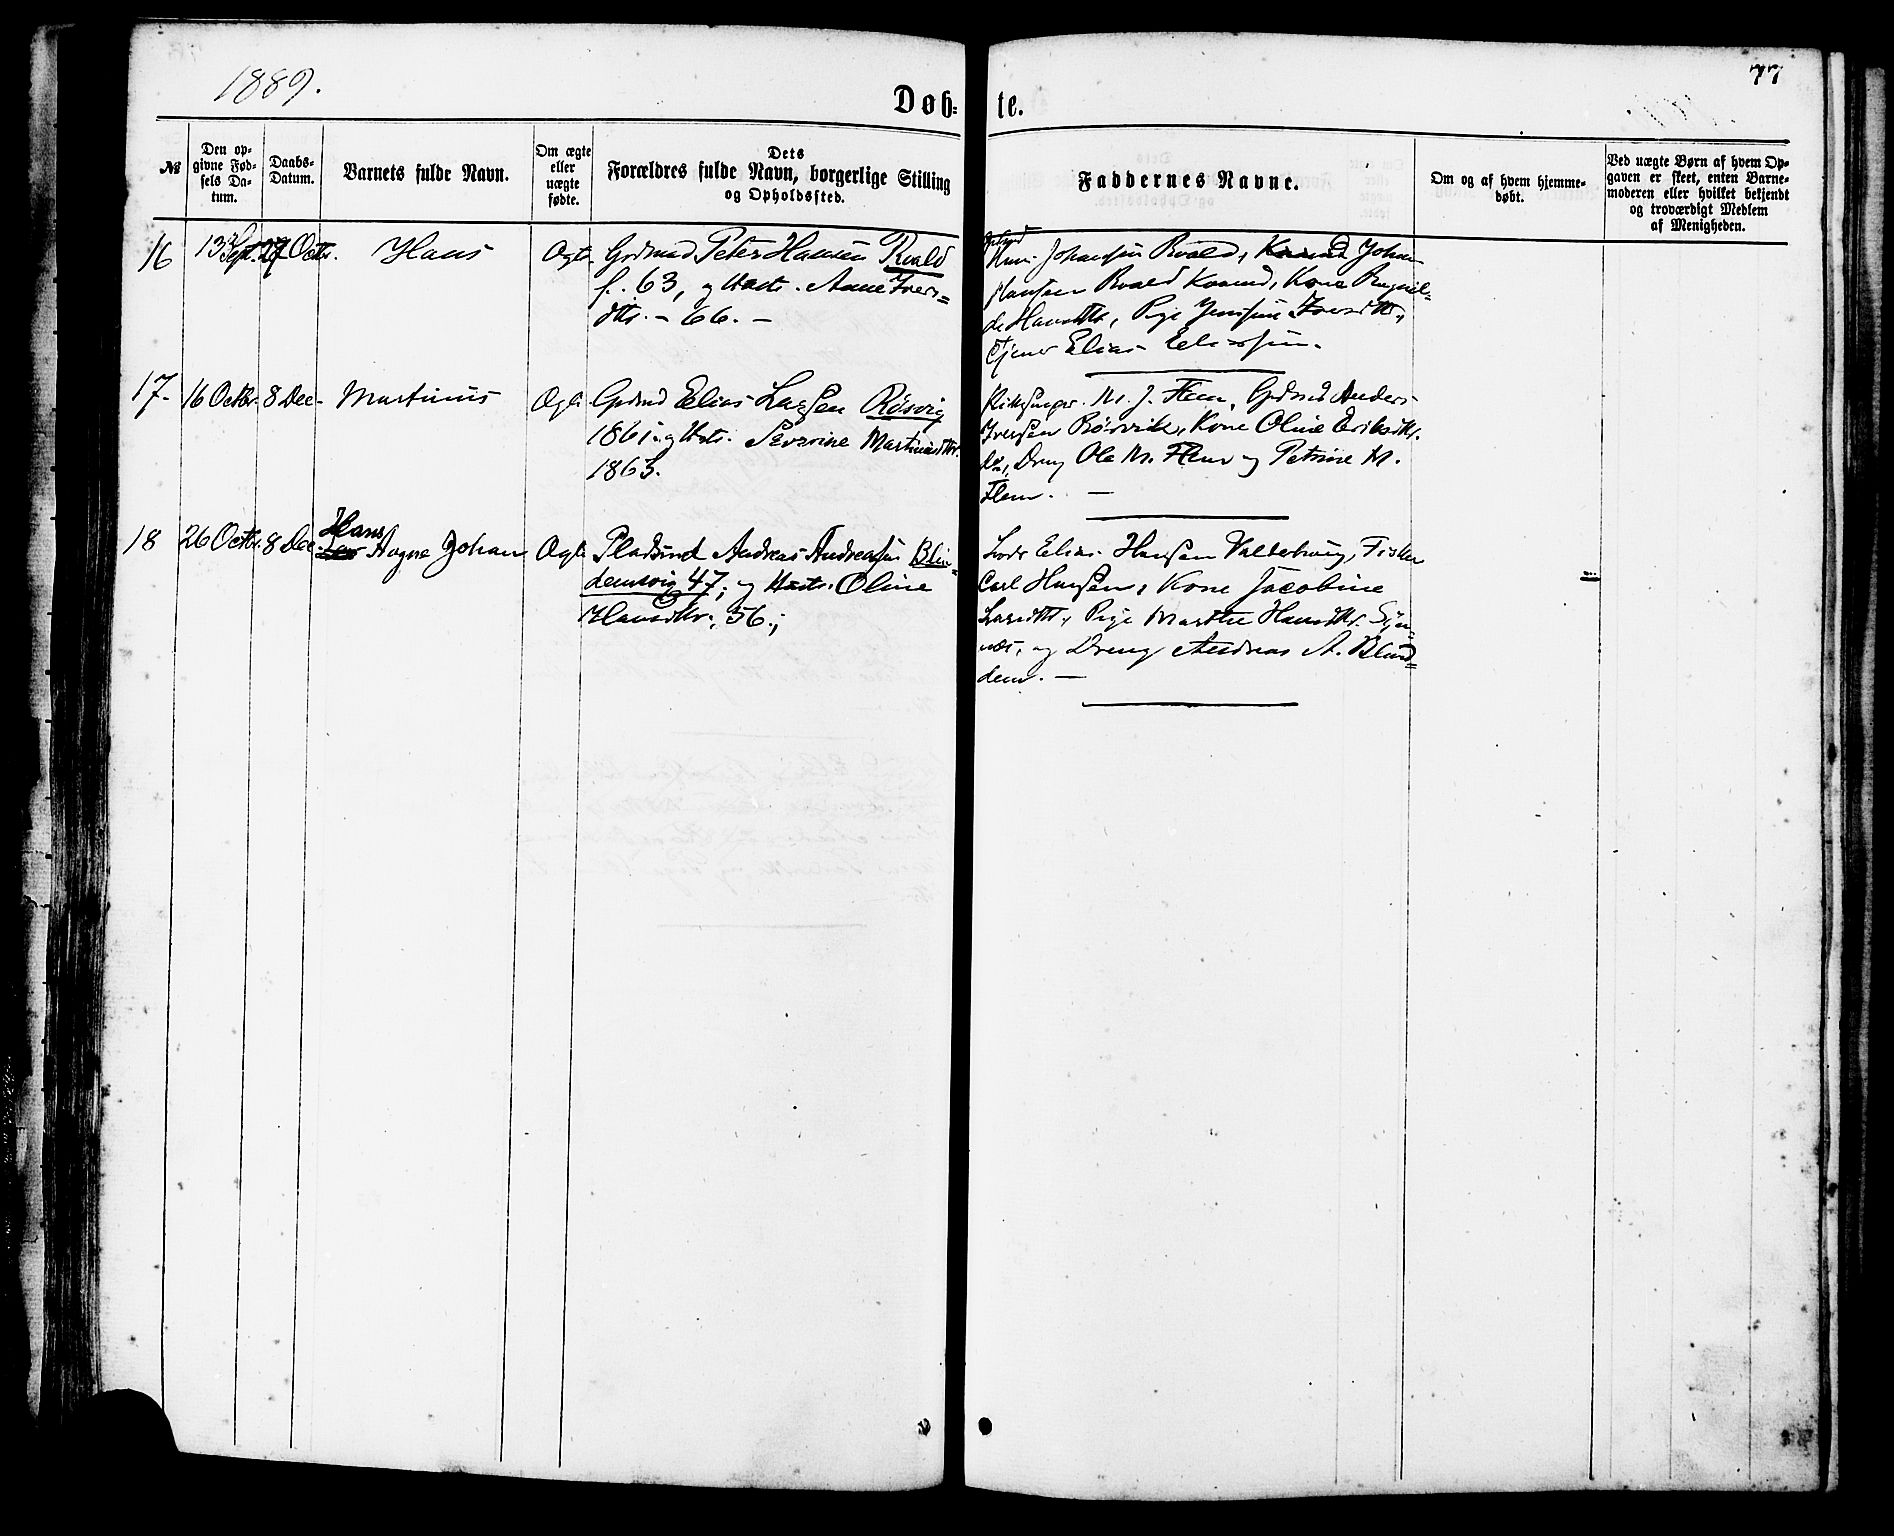 1889.
77
Døb-
te.
№
Den op-
givne Fød-
sels Da-
tum.
Daabs-
Datum.
Barnets fulde Navn.
Om ægte
eller
uægte
fødte.
Dets
Forældres fulde Navn, borgerlige Stilling
og Opholdssted.
Faddernes Navne.
Om og af hvem hjemme-
døbt.
Ved uægte Børn af hvem Op-
gaven er skeet, enten Barne-
moderen eller hvilket bekjendt
og troværdigt Medlem
af Menigheden.
16
13 Sept.
27 Octbr.
Hans
Ægte
Grdmd Peter Hansen Roald
f. 63, og Hustr. Anne Ivers-
dtr. - 66. -
Johansen Roald, Johan
Hansen Roald Kone Ragnil-
de Hansdtr, Pige Iversdtr,
Tjener Elias
17.
16 Octbr.
8 Dec.
Martinus
Ægte
Grdmd Elias Larsen Rösvig
1861 og Hstr. Severine Martinusdtr.
1863.
Kirkesanger M. J. Flem, Grdmd Anders
Iversen Rösvik, Kone Oline Eriksdtr.
do, Dreng Ole M. Flem og Petrine M.
Flem. -
18
26 Octbr.
8 Dec.
Hans
Aagne Johan
Ægte
Pladsmd Andreas Andreasen Blin-
demsvig 47, og Hustr. Oline
Hansdtr., 56.;
Lods Elias Hansen Valderhaug, Fisker
Carl Hansen, Kone Jacobine
Larsdtr, Pige Marthe Hansdtr. Syn-
næs, og Dreng Andreas A. Blind-
dem. -